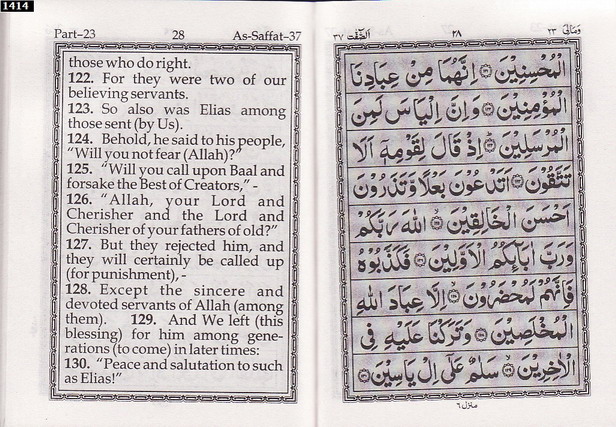 1414
Part–23 28 As-Saffat–37
those who do right.
122. For they were two of our
believing servants.
123. So also was Elias among
those sent (by Us).
124. Behold, he said to his people,
“Will you not fear (Allah)?”
125. “Will you call upon Baal and
forsake the Best of Creators,” -
126. “Allah, your Lord and
Cherisher and the Lord and
Cherisher of your fathers of old?”
127. But they rejected him, and
they will certainly be called up
(for punishment), -
128. Except the sincere and
devoted servants of Allah (among
them). 129. And We left (this
blessing) for him among gene-
rations (to come) in later times:
130. “Peace and salutation to such
as Elias!”
وَمَالِىَ ٢٣ ٢٨ اَلصّٰفّٰت ٣٧
الْمُحْسِنِيْنَ ۝ اِنَّهُمَا مِنْ عِبَادِنَا
الْمُؤْمِنِيْنَ ۝ وَاِنَّ اِلْيَاسَ لَمِنَ
الْمُرْسَلِيْنَ ۝ اِذْ قَالَ لِقَوْمِهٖۤ اَلَا
تَتَّقُوْنَ ۝ اَتَدْعُوْنَ بَعْلًا وَّتَذَرُوْنَ
اَحْسَنَ الْخَالِقِيْنَ ۝ اللّٰهَ رَبَّكُمْ
وَرَبَّ اٰبَآئِكُمُ الْاَوَّلِيْنَ ۝ فَكَذَّبُوْهُ
فَاِنَّهُمْ لَمُحْضَرُوْنَ ۝ اِلَّا عِبَادَ اللّٰهِ
الْمُخْلَصِيْنَ ۝ وَتَرَكْنَا عَلَيْهِ فِى
الْاٰخِرِيْنَ ۝ سَلٰمٌ عَلٰٓى اِلْ يَاسِيْنَ ۝
منزل ٦